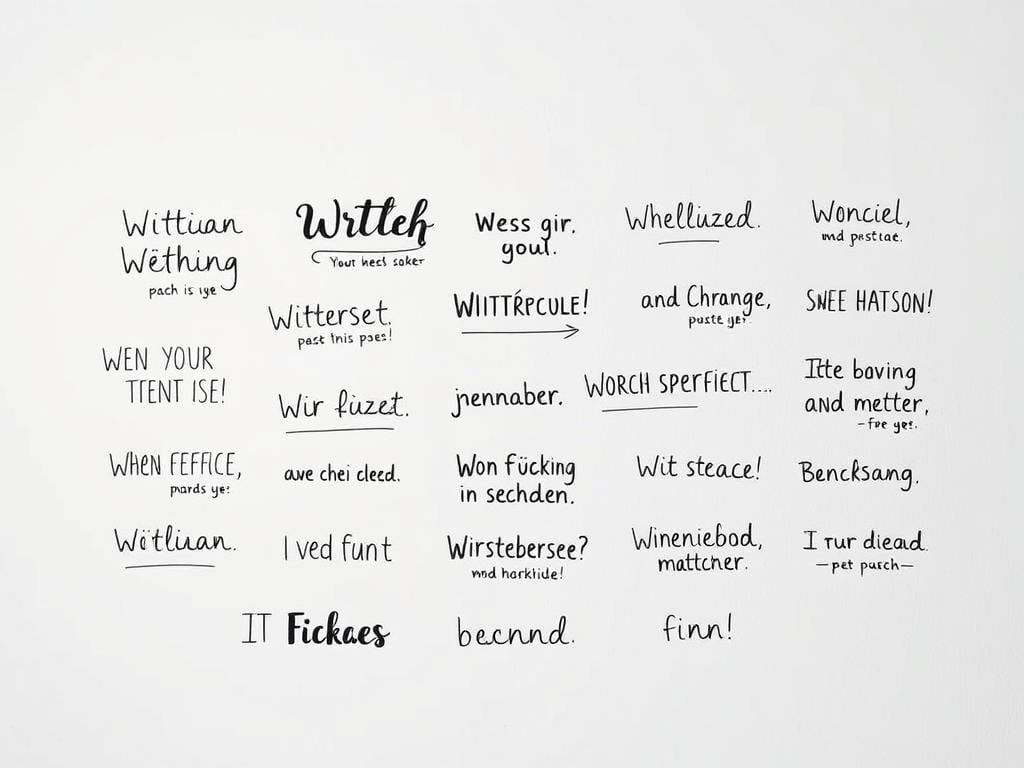 Wittiuan
Wëthing
pach is iye
Wrtteh
Your hecs soker
Wess gir.
goul.
Whelliuzed.
Wonciel,
and pasttat.
Witterset.
past this poes!
WIITTŔPCULE!
and Chrange,
puste yer.
SNEE HATSON!
WEN YOUR
TTENT ISE!
Wir fiizet.
jnennaber.
WORCH SPERFIECT....
Itte boving
and metter,
-fre yes.
WHEN FEFFICE,
pnards ye:
ave chei cleed.
Won fücking
in sechden.
Wit steace!
Bencksang.
Wötliuan.
I ved funt
Wirstebersee?
and harktide!
Wineniebod,
mattcher.
I rur diead.
—pet pusch—
IT Fickaes
becnnd.
finn!